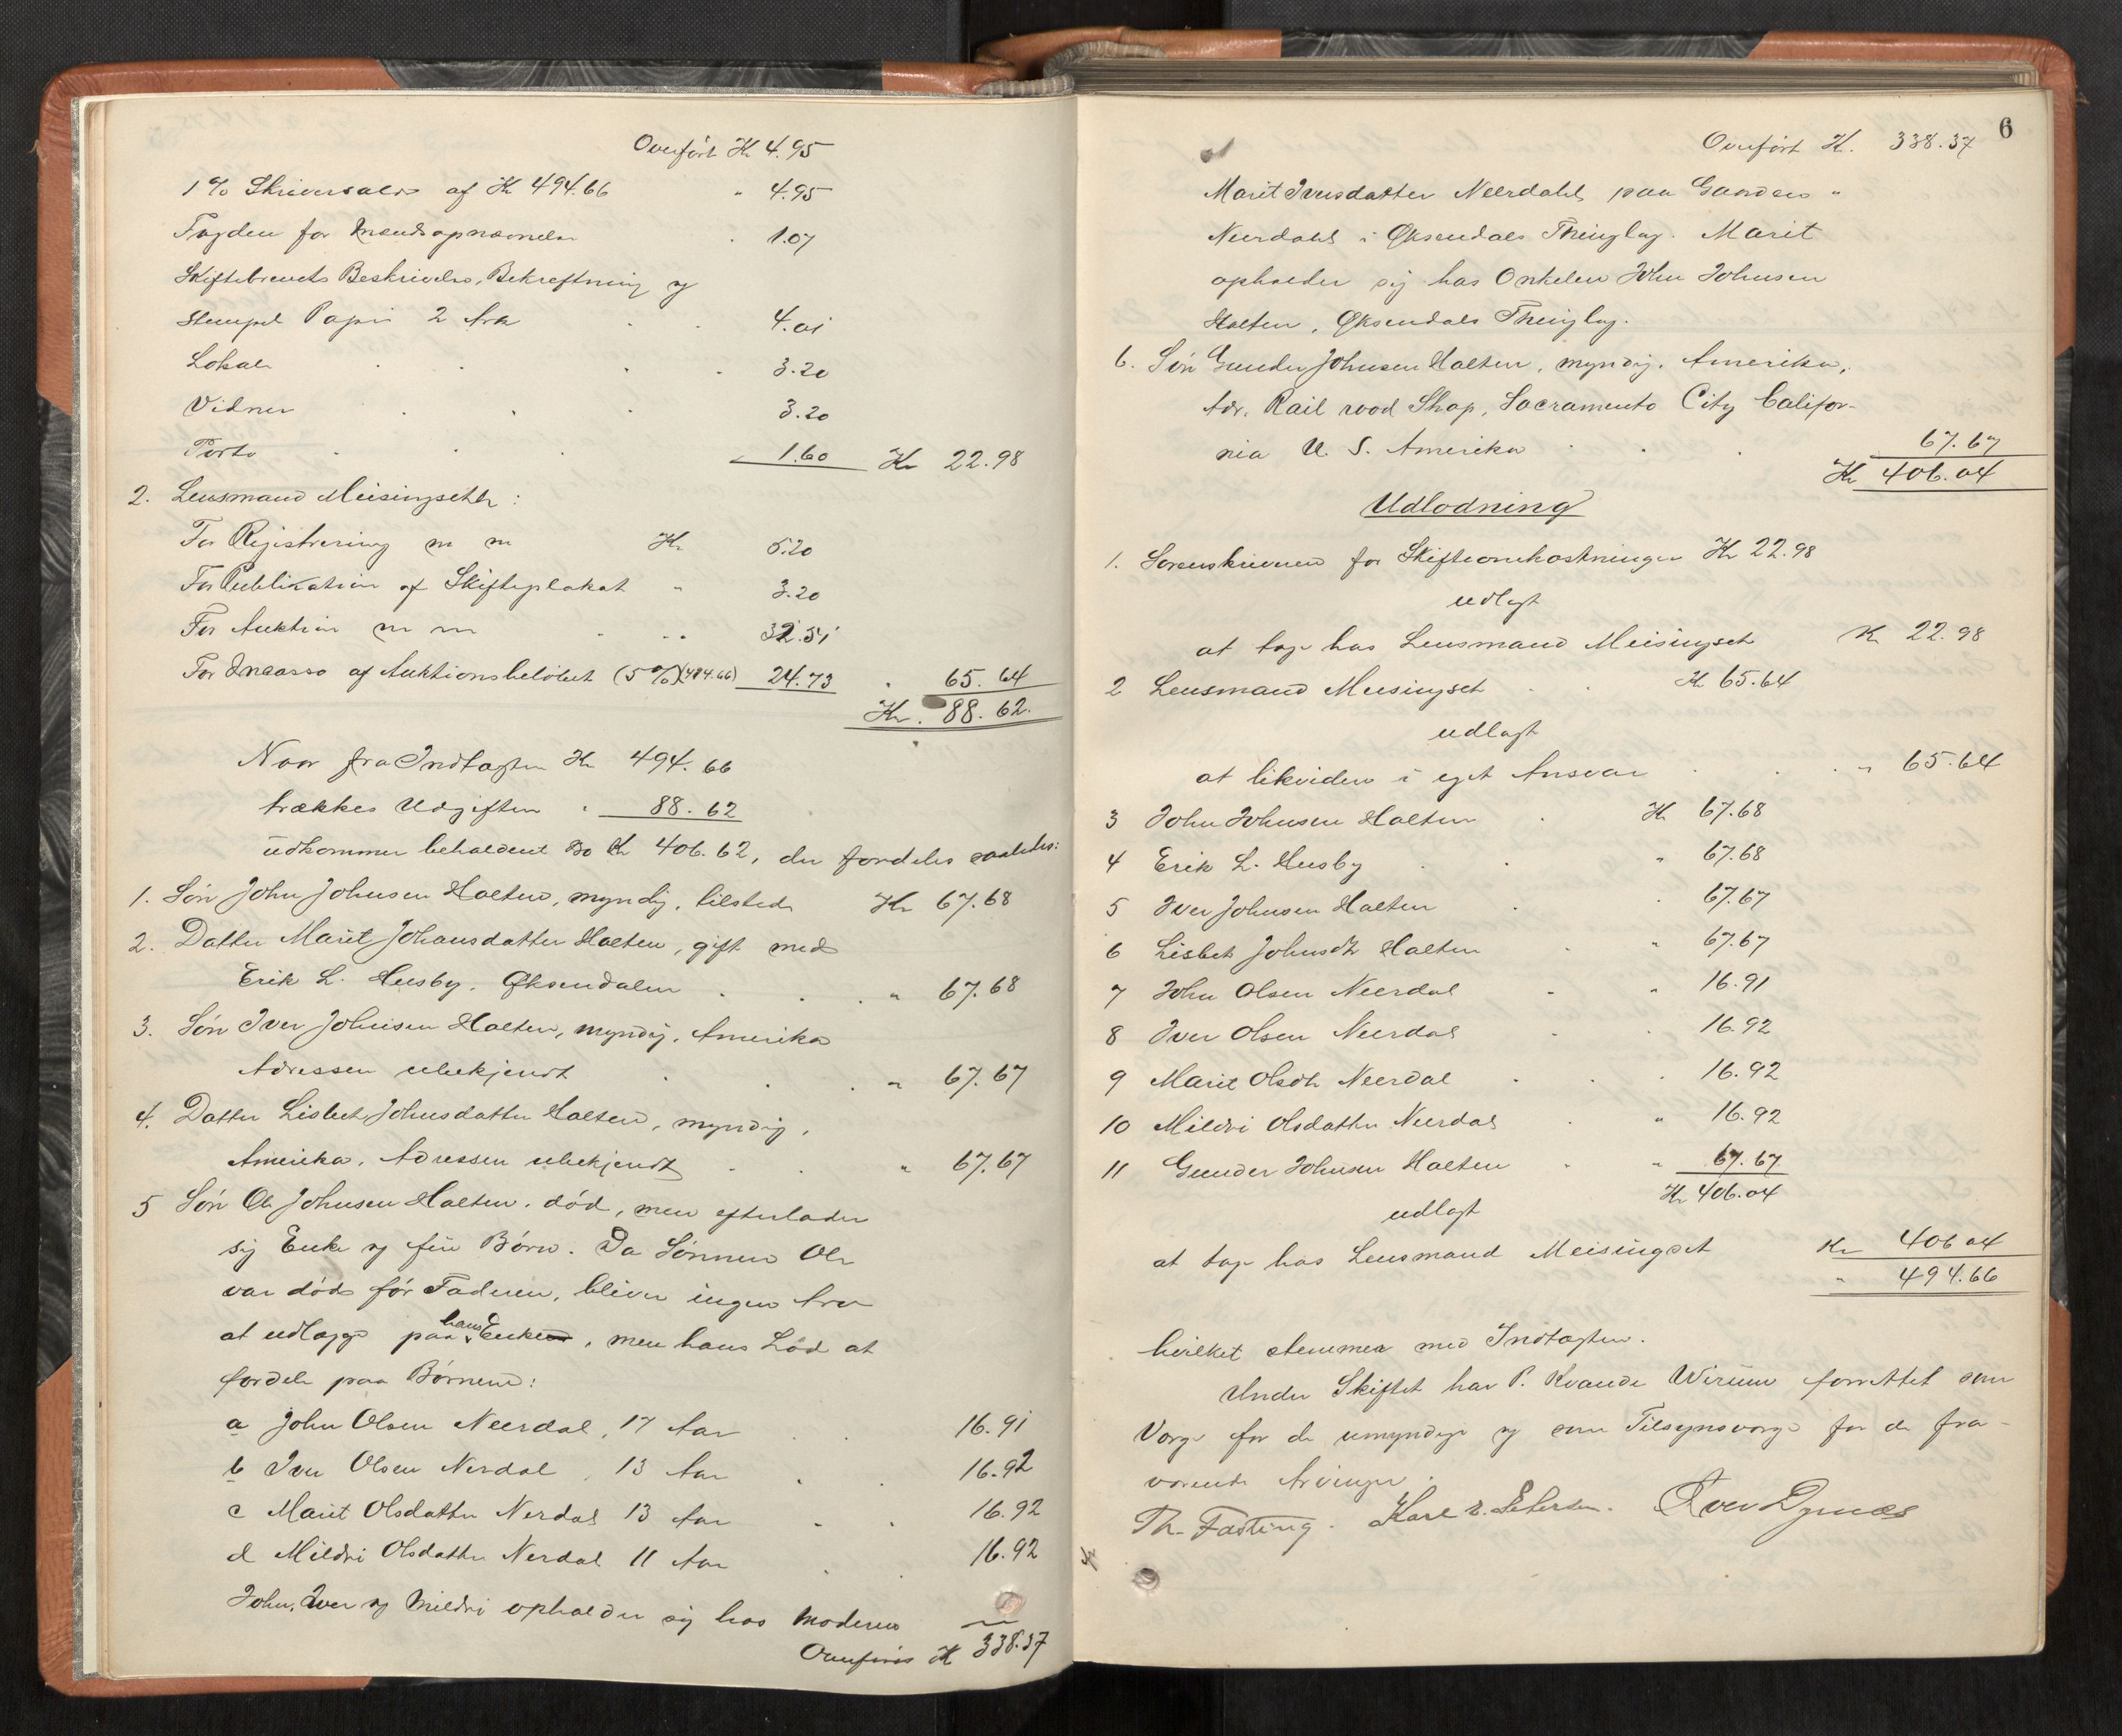 Overført Kr 4.95
1 % Skriversalær af Kr 494.66 " 4.95
Fogden for Mændsopnævnelse 1.07
Skiftebrevets Beskrivelse, Bekreftning og
stempel Papir 2 Ark 4.01
Lokale 3.20
Vidner 3.20
Porto 1.60 Kr 22.98
2. Lensmand Meisingseth:
For Registrering m m Kr 5.20
For Publikation af Skifteplakat " 3.20
For Auktion m m " 32.51
For Incasso af Auktionsbeløbet (5 %)(494.66) 24.73 " 65.64
Kr. 88.62.
Naar fra Indtægten Kr 494.66
trækkes Udgiften " 88.62
udkommer beholdent Bo Kr 406.62, der fordeles saaledes:
1. Søn John Johnsen Halten, myndig, tilstede Kr 67.68
2. Datter Marit Johansdatter Halten, gift med
Erik L. Husby, Øksendalen " 67.68
3. Søn Iver Johnsen Halten, myndig, Amerika
Adressen ubekjendt " 67.67
4. Datter Lisbet Johnsdatter Halten, myndig,
Amerika, Adressen ubekjendt " 67.67
5 Søn Ole Johnsen Halten, død, men efterlader
sig Enke og fire Børn. Da Sønnen Ole
var død før Faderen, bliver ingen Arv
at udlægge paa hans Enke, men hans Lod at
fordele paa Børnene:
a John Olsen Neerdal, 17 Aar 16.91
b Iver Olsen Nerdal, 13 Aar 16.92
c Marit Olsdatter Nerdal 13 Aar 16.92
d Mildri Olsdatter Nerdal 11 Aar 16.92
John, Iver og Mildri opholder sig hos Moderen
Overføres Kr 338.37
6
Overført Kr. 338.37
Marit Iversdatter Neerdahl paa Gaarden "
Neerdahl i Øksendals Thinglag. Marit
opholder sig hos Onkelen John Johnsen
Halten, Øksendals Thinglag.
6. Søn Gunder Johnsen Halten, myndig, Amerika,
Adr. Rail rood Shop, Sacramento City Califor-
nia U. S. Amerika 67.67
Kr 406.04
Udlodning
1. Sorenskriveren for Skifteomkostninger Kr 22.98
udlagt
at tage hos Lensmand Meisingset Kr 22.98
2 Lensmand Meisingset Kr 65.64
udlagt
at likvidere i eget Ansvar " 65.64
3 John Johnsen Halten Kr 67.68
4 Erik L. Husby " 67.68
5 Iver Johnsen Halten " 67.67
6 Lisbet Johnsdtr Halten " 67.67
7 John Olsen Neerdal " 16.91
8 Iver Olsen Neerdal " 16.92
9 Marit Olsdtr Neerdal " 16.92
10 Mildri Olsdatter Neerdal " 16.92
11 Gunder Johnsen Halten " 67.67
Kr 406.04
udlagt
at tage hos Lensmand Meisingset Kr 406.04
" 494.66
hvilket stemmer med Indtægten.
Under Skiftet har P. Kvande Wirum forrettet som
Værge for de umyndige og som Tilsynsværge for de fra-
værende Arvinger.
Th. Fasting. Karl E. Petersen. Iver Dyrnæs